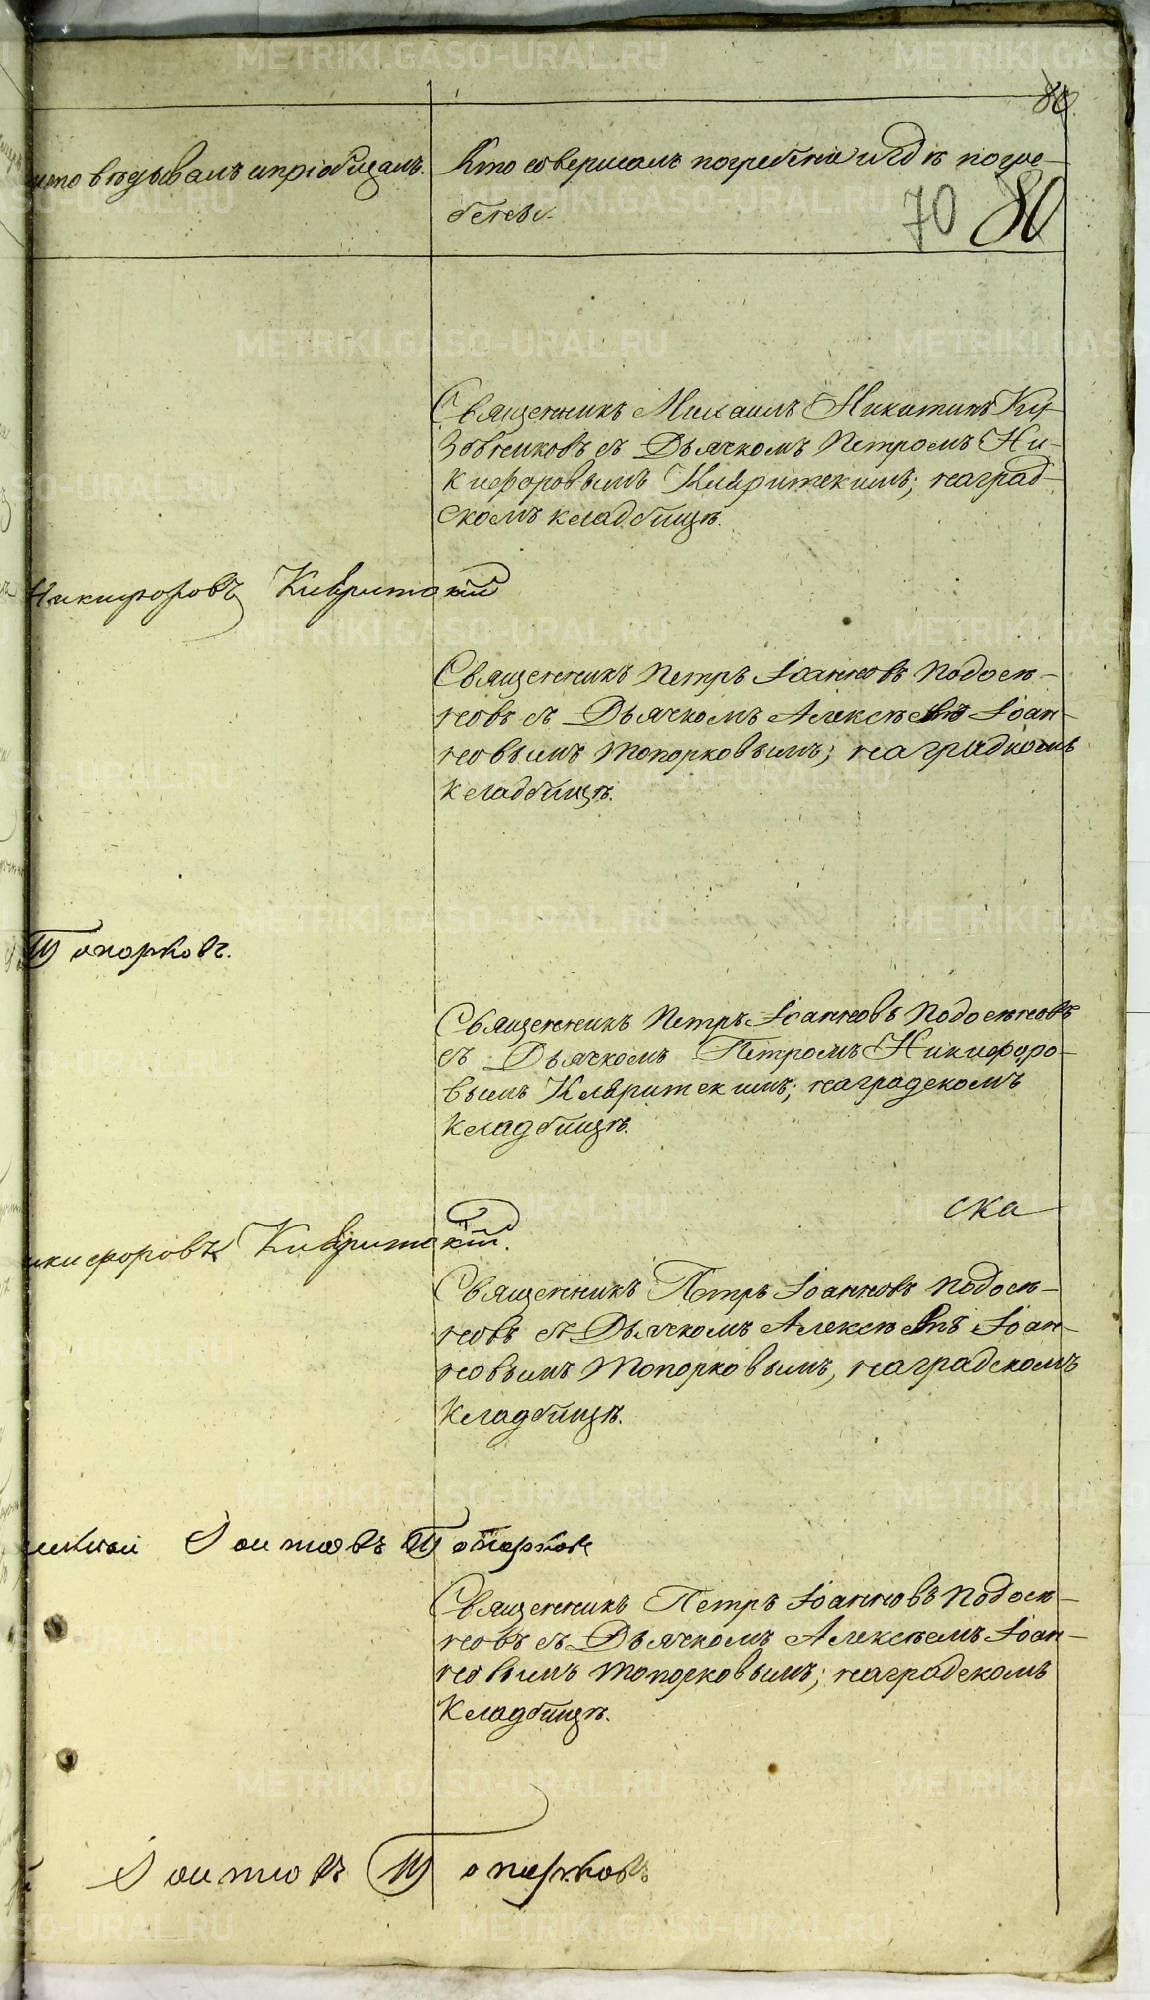 80
исповѣдывалъ и пріобщалъ.
Кто совершалъ погребеніе и гдѣ погре-
бены.
70 80
Священникъ Михаилъ Никитинъ
съ Дьячкомъ Петромъ Ни-
кифоровымъ Кивритскимъ; на град-
скомъ кладбищѣ.
Никифоровъ Кивритскій
Священникъ Петръ Іоанновъ Подосе-
новъ съ Дьячкомъ Алексѣемъ Іоан-
новымъ Топорковымъ; на градскомъ
кладбищѣ.
Топорковъ.
Священникъ Петръ Іоанновъ Подосеновъ
съ Дьячкомъ Петромъ Никифоро-
вымъ Кивритскимъ; на градскомъ
кладбищѣ.
ска
Кивритскій.
Священникъ Петръ Іоанновъ Подосе-
новъ съ Дьячкомъ Алексѣемъ Іоан-
новымъ Топорковымъ, на градскомъ
кладбищѣ.
Іоанновъ Топорковъ
Священникъ Петръ Іоанновъ Подосе-
новъ съ Дьячкомъ Алексѣемъ Іоан-
новымъ Топорковымъ; на градскомъ
кладбищѣ.
Іоанновъ Топорковъ
METRIKI.GASO-URAL.RU